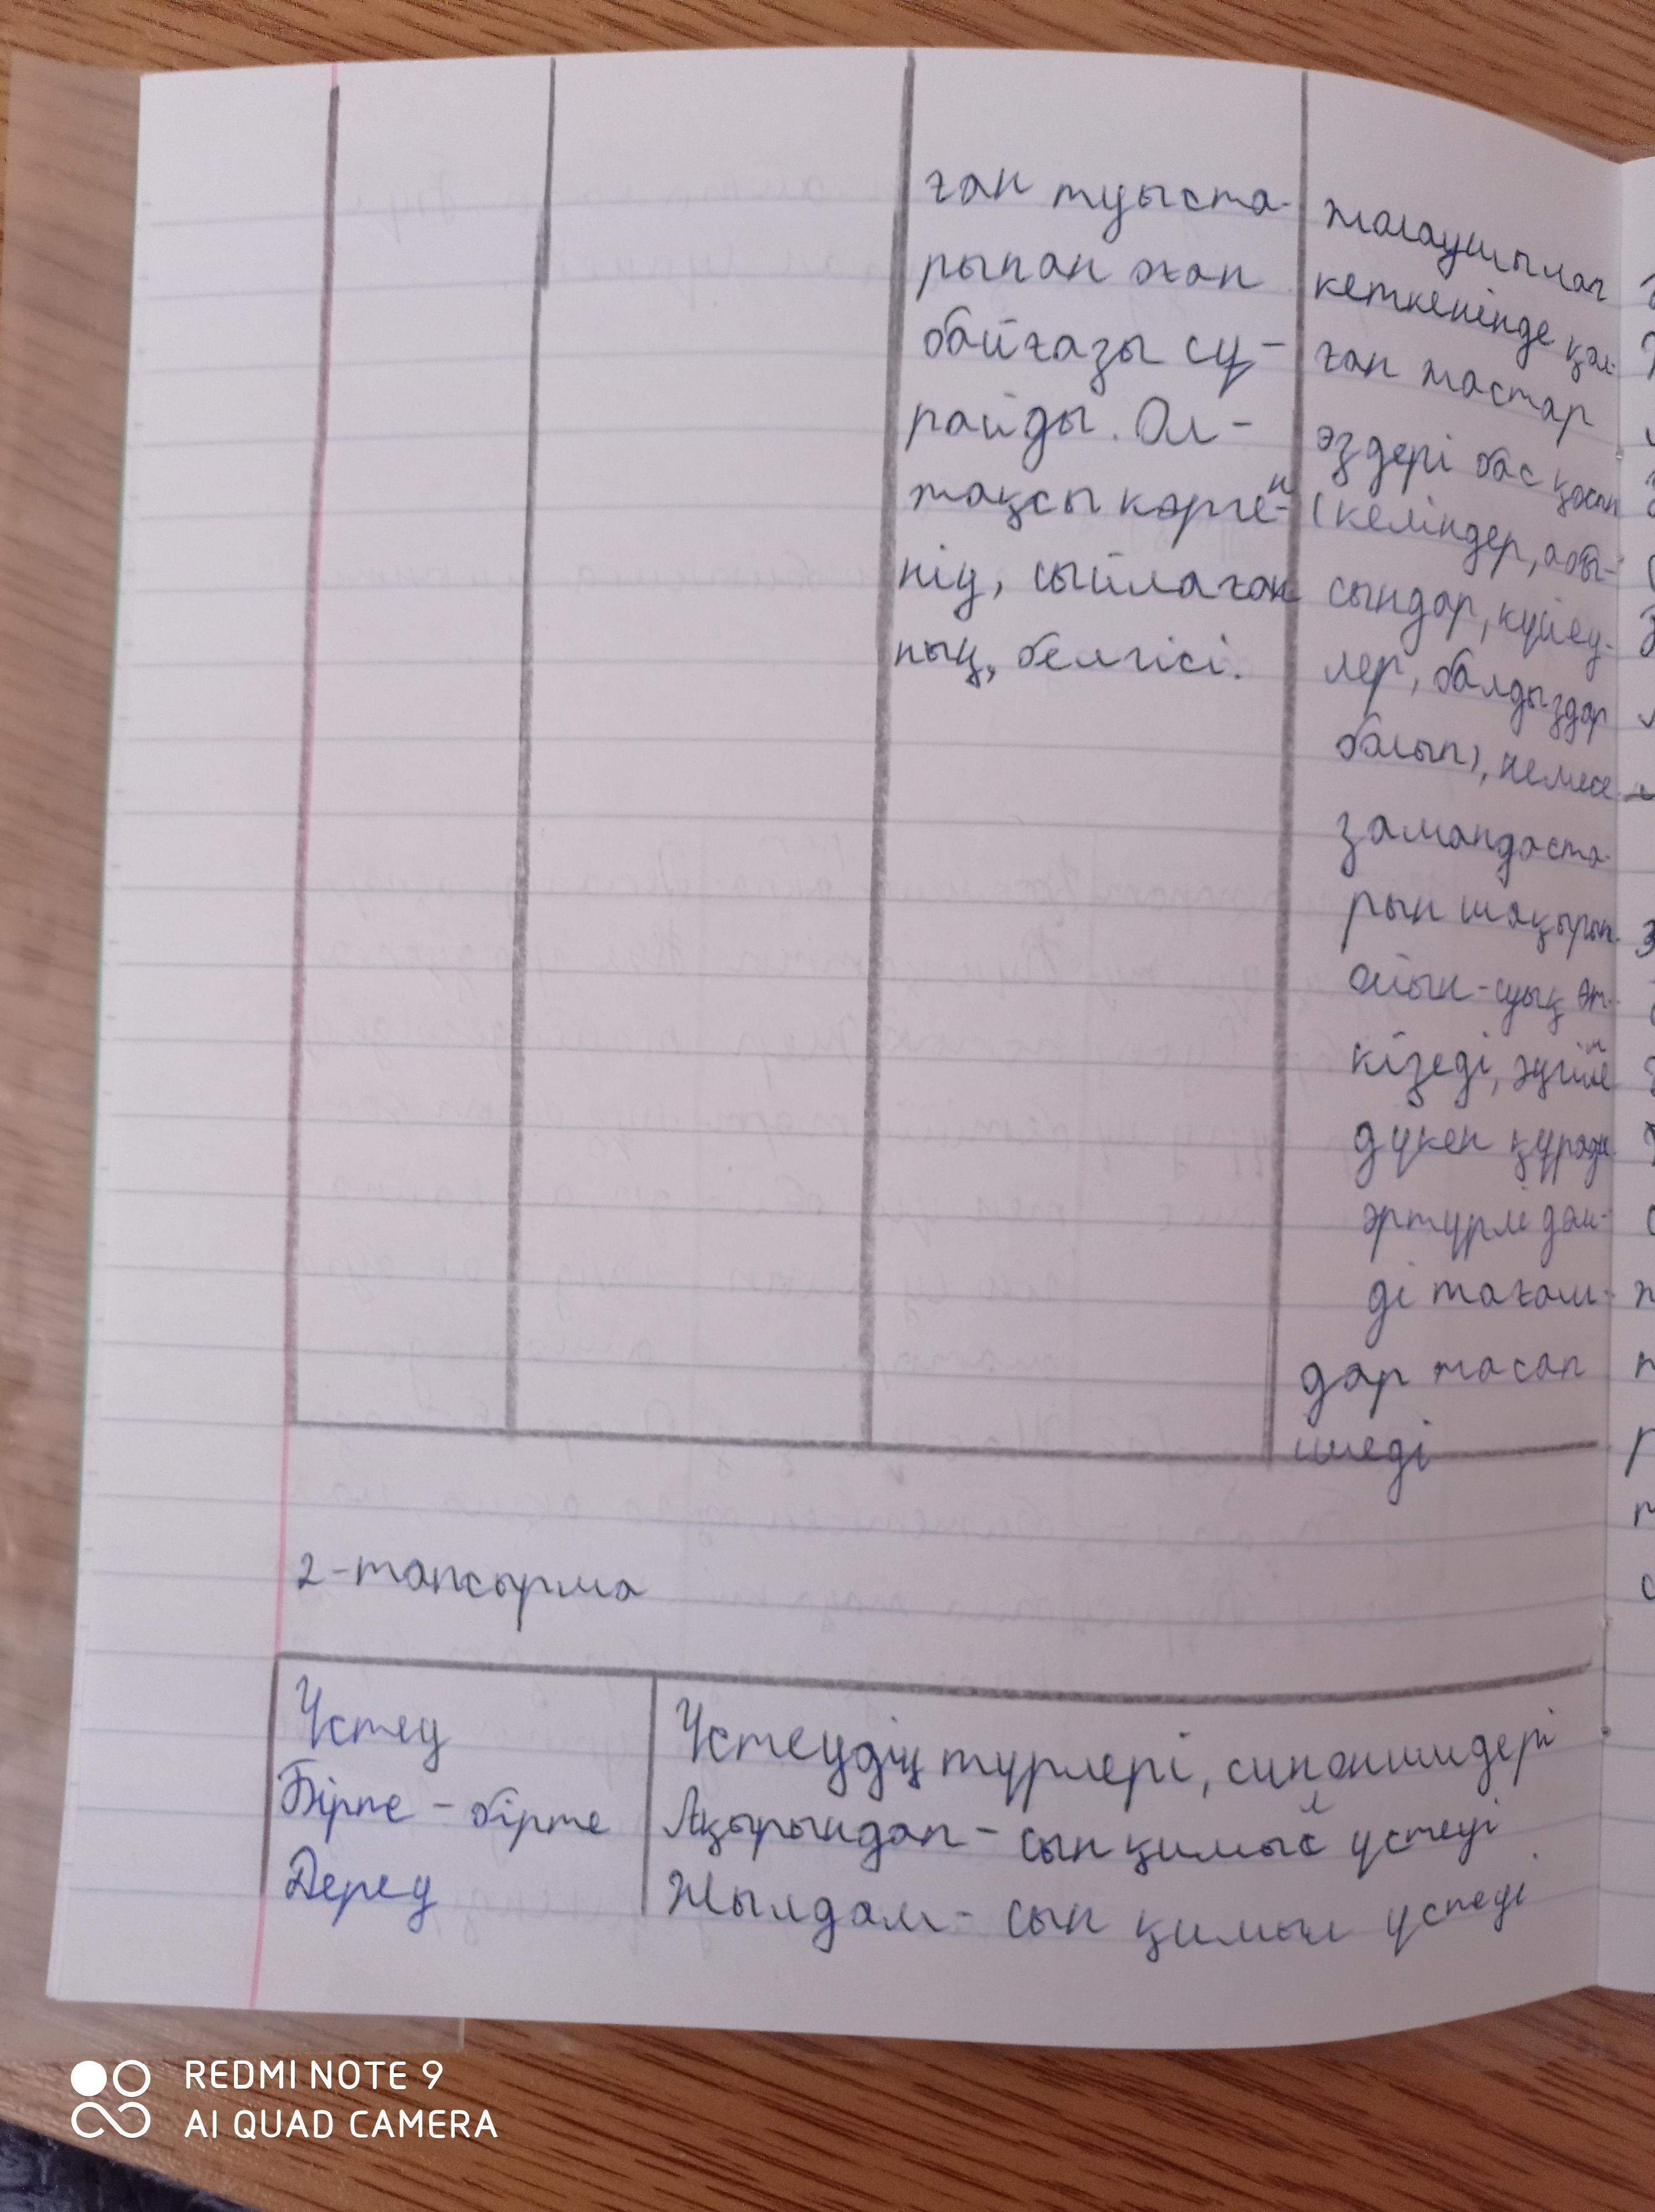 ған туыста-
рынан оған
байғазы сұ-
райды. Ол-
жақсы көрген-
нің, сыйлаған
ның, белгісі.
кеткенінде қал-
ған жастар
өздері бас қосып
(келіндер, абы-
сындар, күйеу-
лер, балдыздар
болып), немесе
замандаста-
рын шақырып
ойын-сауық өт-
кізеді, әңгіме
дүкен құрады
әртүрлі дәм-
ді тағам-
дар жасап
ішеді
2-тапсырма
Үстеу
Бірте-бірте
Дереу
Үстеудің түрлері, синонимдері
Ақырындап - сын қимыл үстеуі
Жылдам - сын қимыл үстеуі
REDMI NOTE 9
AI QUAD CAMERA